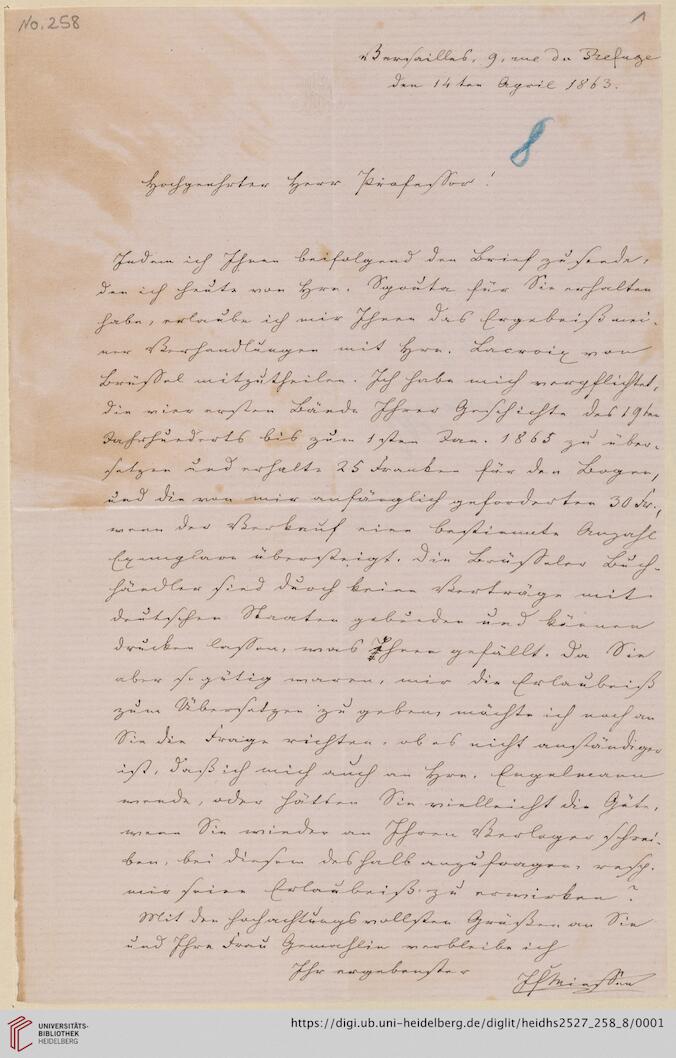 No. 258
1
Versailles, 9, rue du Refuge
den 14ten April 1863.
8
Hochgeehrter Herr Professor!
Indem ich Ihnen beifolgend den Brief zusende,
den ich heute von Hrn. Sgouta für Sie erhalten
habe, erlaube ich mir Ihnen das Ergebniß mei-
ner Verhandlungen mit Hrn. Lacroix von
Brüssel mitzutheilen. Ich habe mich verpflichtet,
die vier ersten Bände Ihrer Geschichte des 19ten
Jahrhunderts bis zum 1sten Jan. 1865 zu über-
setzen und erhalte 25 Franken für den Bogen,
und die von mir anfänglich geforderten 30 Fr.,
wenn der Verkauf eine bestimmte Anzahl
Exemplare übersteigt. Die Brüsseler Buch-
händler sind durch keine Verträge mit
deutschen Staaten gebunden und können
drucken lassen, was Ihnen gefällt. Da Sie
aber so gütig waren, mir die Erlaubniß
zum Übersetzen zu geben, möchte ich noch an
Sie die Frage richten, ob es nicht anständiger
ist, daß ich mich auch an Hrn. Engelmann
wende, oder hätten Sie vielleicht die Güte,
wenn Sie wieder an Ihren Verleger schrei-
ben, bei diesem deshalb anzufragen, resp.
mir seine Erlaubniß zu erwirken?
Mit den hochachtungsvollsten Grüßen an Sie
und Ihre Frau Gemahlin verbleibe ich
Ihr ergebenster
Minssen
UNIVERSITÄTS-
BIBLIOTHEK
HEIDELBERG
https://digi.ub.uni-heidelberg.de/diglit/heidhs2527_258_8/0001